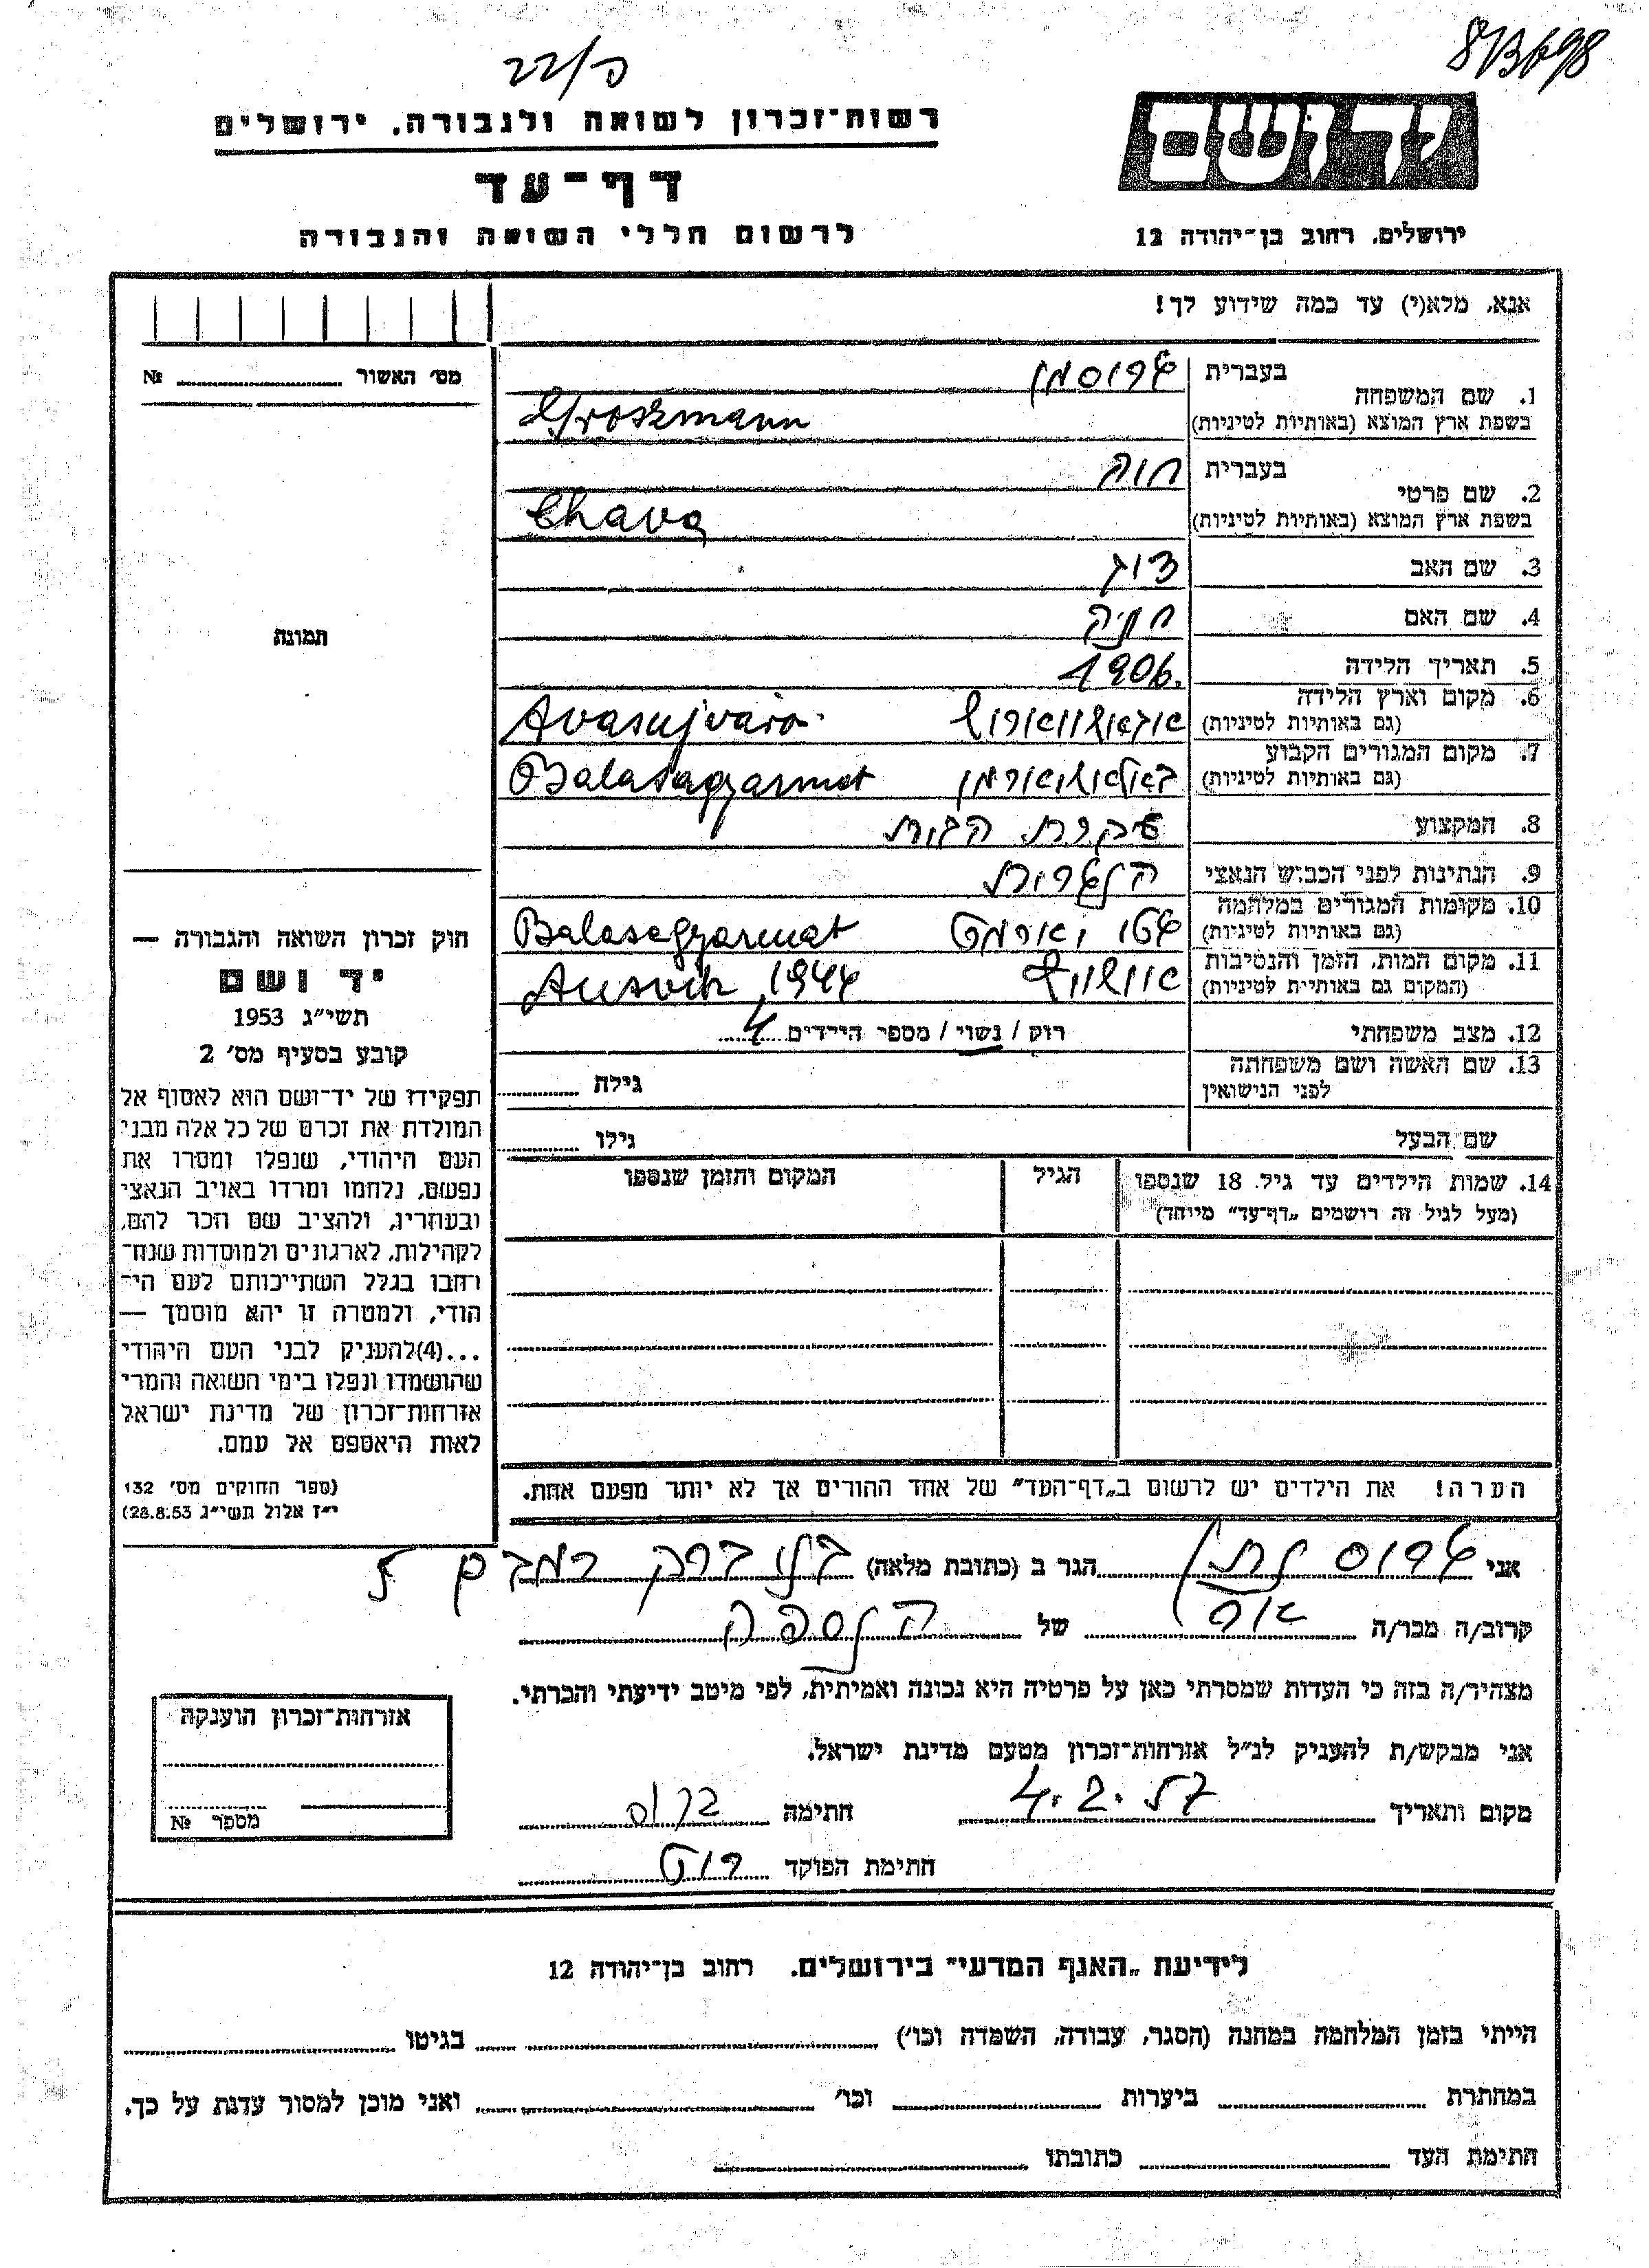 813698
כ/22
יד ושם
רשות־זכרון לשואה ולגבורה, ירושלים
דף־עד
לרשום חללי השואה והגבורה
ירושלים, רחוב בן־יהודה 12
אנא, מלא(י) עד כמה שידוע לך!
מס׳ האשור № 
תמונה
1. שם המשפחה
בעברית גרוסמן
בשפת ארץ המוצא (באותיות לטיניות) Groszmann
2. שם פרטי
בעברית חוה
בשפת ארץ המוצא (באותיות לטיניות) Chava
3. שם האב
4. שם האם
5. תאריך הלידה 1906.
6. מקום וארץ הלידה
(גם באותיות לטיניות) Avasujvaro
7. מקום המגורים הקבוע
(גם באותיות לטיניות) Balasagyarmat
8. המקצוע עקרת הבית
9. הנתינות לפני הכבוש הנאצי הונגרית
10. מקומות המגורים במלחמה
(גם באותיות לטיניות) Balasagyarmat
11. מקום המות, הזמן והנסיבות
(המקום גם באותיות לטיניות) אושוויץ Ausvitz, 1944
12. מצב משפחתי רוק / נשוי / מספר הילדים 4
13. שם האשה ושם משפחתה
לפני הנישואין גילה
שם הבעל גילו
14. שמות הילדים עד גיל 18 שנספו הגיל המקום והזמן שנספו
(מעל לגיל זה רושמים „דף־עד״ מיוחד)
הערה! את הילדים יש לרשום ב„דף־העד״ של אחד ההורים אך לא יותר מפעם אחת.
חוק זכרון השואה והגבורה —
יד ושם
תשי״ג 1953
קובע בסעיף מס׳ 2
תפקידו של יד־ושם הוא לאסוף אל
המולדת את זכרם של כל אלה מבני
העם היהודי, שנפלו ומסרו את
נפשם, נלחמו ומרדו באויב הנאצי
ובעוזריו, ולהציב שם וזכר להם,
לקהילות, לארגונים ולמוסדות שנח־
רחבו בגלל השתייכותם לעם הי־
הודי, ולמטרה זו יהא מוסמך —
...(4)להעניק לבני העם היהודי
שהושמדו ונפלו בימי השואה והמרי
אזרחות־זכרון של מדינת ישראל
לאות היאספם אל עמם.
(ספר החוקים מס׳ 132
י״ז אלול תשי״ג 28.8.53)
אני גרוס נתן הגר ב (כתובת מלאה) בני ברק רמבם 5
קרוב/ה מכר/ה אח של הנספה
מצהיר/ה בזה כי העדות שמסרתי כאן על פרטיה היא נכונה ואמיתית, לפי מיטב ידיעתי והכרתי.
אני מבקש/ת להעניק לנ״ל אזרחות־זכרון מטעם מדינת ישראל.
מקום ותאריך 4.2.57 חתימה
חתימת הפוקד
אזרחות־זכרון הוענקה
מספר №
לידיעת „האגף המדעי״ בירושלים, רחוב בן־יהודה 12
הייתי בזמן המלחמה במחנה (הסגר, עבודה, השמדה וכו׳) בגיטו
במחתרת ביערות וכו׳ ואני מוכן למסור עדות על כך.
חתימת העד כתובתו